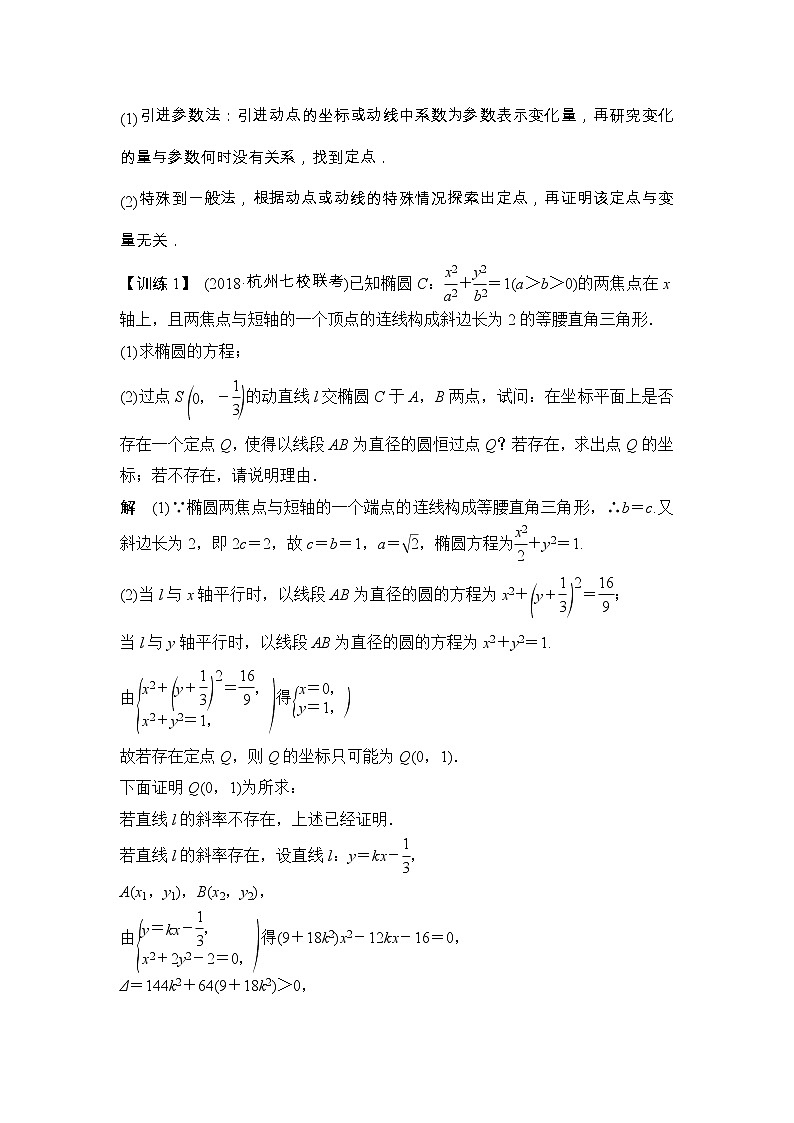 (1)引进参数法：引进动点的坐标或动线中系数为参数表示变化量，再研究变化
的量与参数何时没有关系，找到定点．
(2)特殊到一般法，根据动点或动线的特殊情况探索出定点，再证明该定点与变
量无关．
【训练1】 (2018·杭州七校联考)已知椭圆C：x²/a²＋y²/b²＝1(a＞b＞0)的两焦点在x
轴上，且两焦点与短轴的一个顶点的连线构成斜边长为2的等腰直角三角形．
(1)求椭圆的方程；
(2)过点S(0，－1/3)的动直线l交椭圆C于A，B两点，试问：在坐标平面上是否
存在一个定点Q，使得以线段AB为直径的圆恒过点Q？若存在，求出点Q的坐
标；若不存在，请说明理由．
解 (1)∵椭圆两焦点与短轴的一个端点的连线构成等腰直角三角形，∴b＝c.又
斜边长为2，即2c＝2，故c＝b＝1，a＝√2，椭圆方程为x²/2＋y²＝1.
(2)当l与x轴平行时，以线段AB为直径的圆的方程为x²＋(y＋1/3)²＝16/9；
当l与y轴平行时，以线段AB为直径的圆的方程为x²＋y²＝1.
由{x²＋(y＋1/3)²＝16/9，x²＋y²＝1，)得{x＝0，y＝1，)
故若存在定点Q，则Q的坐标只可能为Q(0，1)．
下面证明Q(0，1)为所求：
若直线l的斜率不存在，上述已经证明．
若直线l的斜率存在，设直线l：y＝kx－1/3，
A(x₁，y₁)，B(x₂，y₂)，
由{y＝kx－1/3，x²＋2y²－2＝0，)得(9＋18k²)x²－12kx－16＝0，
Δ＝144k²＋64(9＋18k²)＞0，